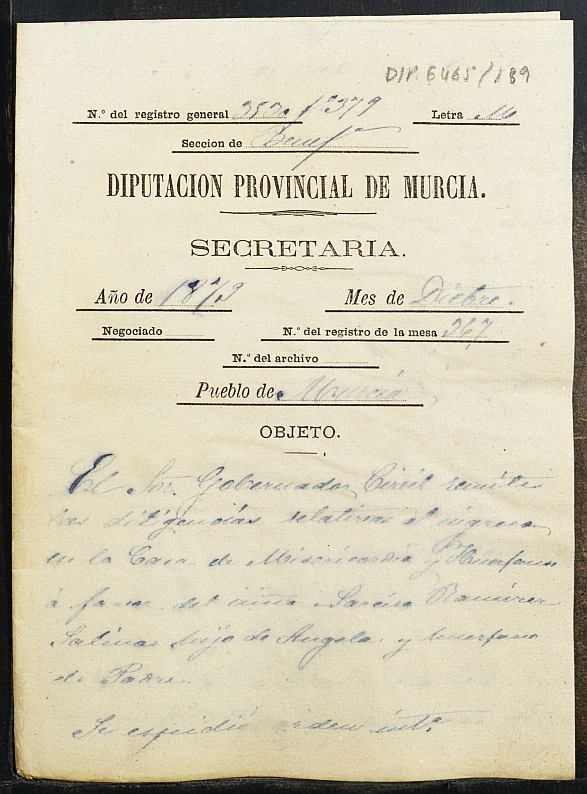 DIP. 6465/189
N.º del registro general fº 379 Letra M
Seccion de Benefª
DIPUTACION PROVINCIAL DE MURCIA.
SECRETARIA.
Año de 1873 Mes de Dicbre.
Negociado N.º del registro de la mesa 267
N.º del archivo
Pueblo de Murcia
OBJETO.
El Sor. Gobernador Civil remite
las diligencias relativas al ingreso
en la Casa de Misericordia y Huerfanos
á favor del niño Narciso Ramirez
Salinas hijo de Angela y huerfano
de Padre.
Se espidió orden intª